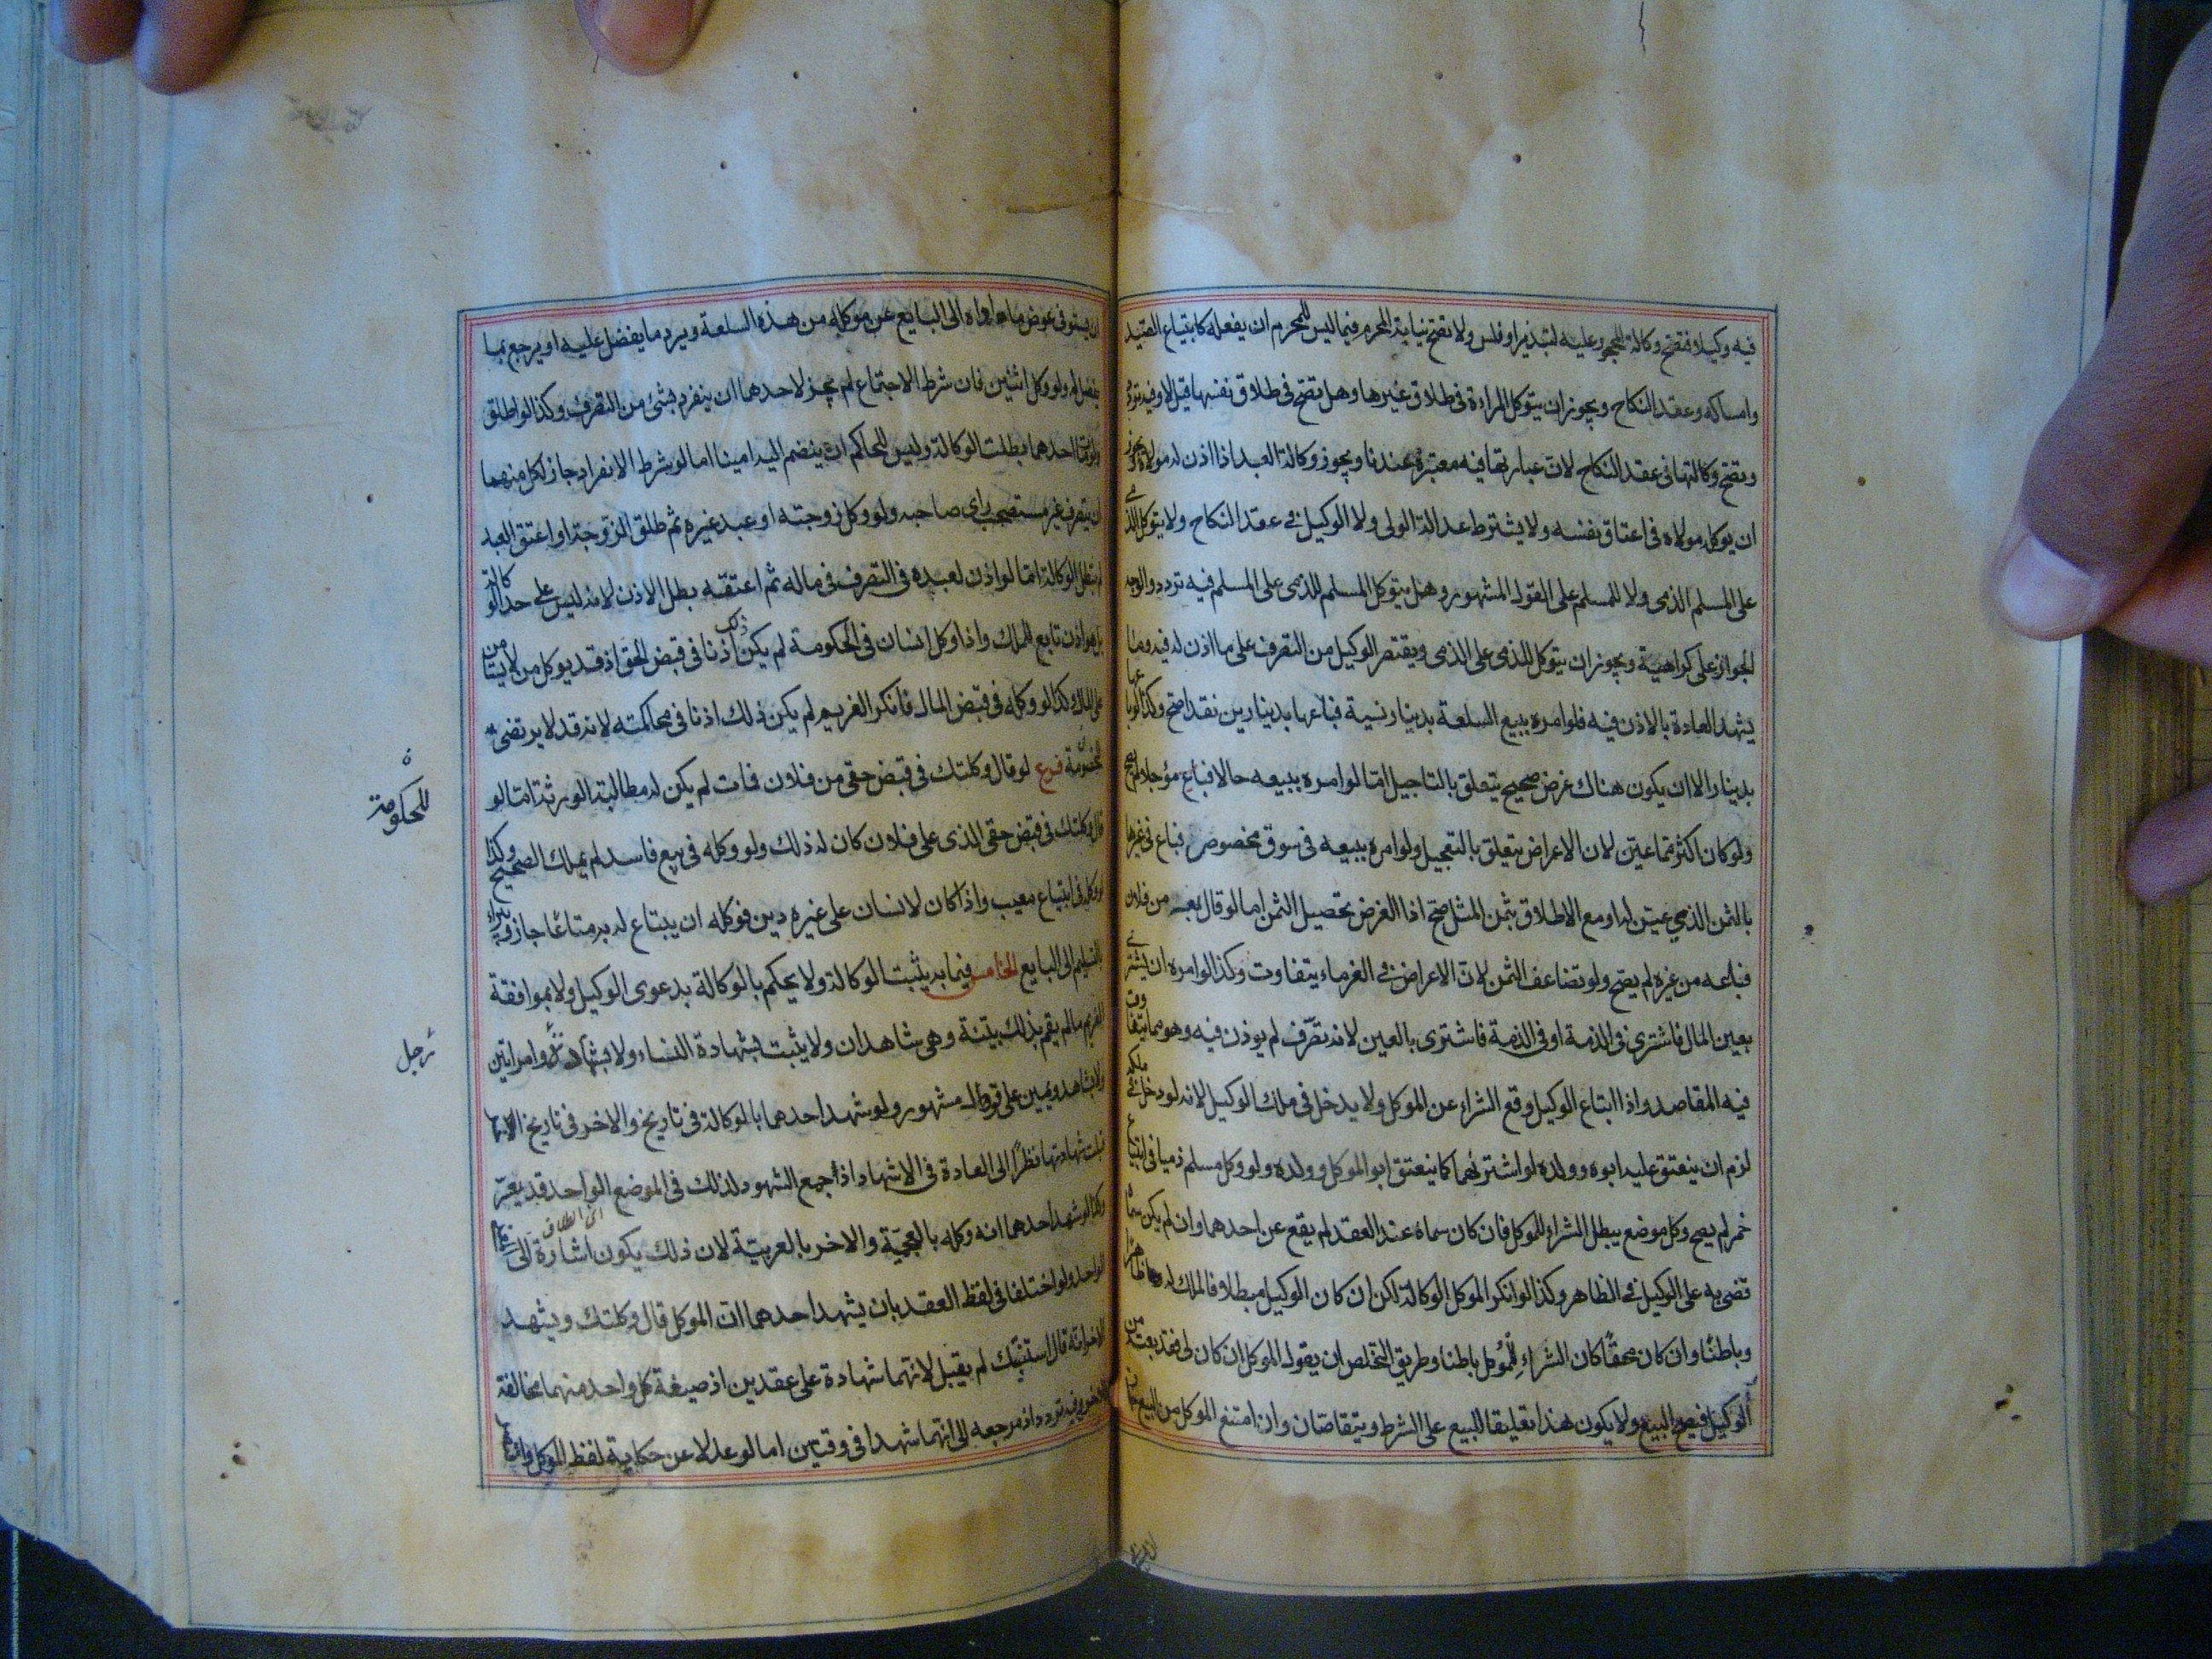 فيه وكيلا فتصح وكالة المحجور عليه لتبذير او فلس ولا تصح نيابة المحرم فيما ليس للمحرم ان يفعله كابتياع الصيد
وامساكه وعقد النكاح ويجوز ان يتوكل المراءة فى طلاق غيرها وهل تصح فى طلاق نفسها قيل لا وفيه تردد
وتصح وكالتها فى عقد النكاح لان عبارتها فيه معتبرة عندنا ويجوز وكالة العبد اذا اذن له مولاه ويجوز
ان يوكله مولاه فى اعتاق نفسه ولا يشترط عدالة الولى ولا الوكيل فى عقد النكاح ولا يتوكل الذمي
على المسلم الذمى ولا للمسلم على القول المشهور وهل يتوكل المسلم للذمى على المسلم فيه تردد والوجه
الجواز على كراهية ويجوز ان يتوكل الذمى على الذمى ويقتصر الوكيل من التصرف على ما اذن له فيه وما
يشهد العادة بالاذن فيه فلو امره ببيع السلعة بدينار نسية فباعها بدينارين نقدا صح وكذا لو باعها
بدينار الا ان يكون هناك غرض صحيح يتعلق بالتاجيل امّا لو امره ببيعه حالا فباع مؤجلا لم يصح
ولو كان اكثر مما عين لان الاغراض يتعلق بالتعجيل ولو امره ببيعه فى سوق مخصوص فباع فى غيرها
بالثمن الذي عين له او مع الاطلاق بثمن المثل صح اذا الغرض تحصيل الثمن اما لو قال بعه من فلان
فباعه من غيره لم يصح ولو تضاعف الثمن لان الاعراض فى الغرماء يتفاوت وكذا لو امره ان يشتري
بعين المال فاشترى فى الذمة او فى الذمة فاشترى بالعين لانه تصرّف لم يوذن فيه وهو مما يتفاوت
فيه المقاصد واذا ابتاع الوكيل وقع الشراء عن الموكل ولا يدخل فى ملك الوكيل لانه لو دخل فى ملكه
لزم ان ينعتق عليه ابوه وولده لو اشتراهما كما ينعتق ابو الموكل وولده ولو وكل مسلم ذميا فى ابتياع
خمر لم يصح وكل موضع يبطل الشراء للموكل فان كان سماه عند العقد لم يقع عن احدهما وان لم يكن سماه
قضى به على الوكيل فى الظاهر وكذا لو انكر الموكل الوكالة لكن ان كان الوكيل مبطلا فالملك له ظاهرا
وباطنًا وان كان محقًا كان الشراء للموكل باطنا وطريق التخلص ان يقول الموكل ان كان لى فقد بعته من
الوكيل فيصح البيع ولا يكون هذا تعليقا للبيع على الشرط ويتقاصّان وان امتنع الموكل من البيع جاز
ان يستوفى عوض ما اداه الى البايع عن موكله من هذه السلعة ويرد ما يفضل عليه او يرجع بما
يفضل له ولو وكل اثنين فان شرط الاجتماع لم يجز لاحدهما ان ينفرد بشئ من التصرف وكذا لو اطلق
ولو مات احدهما بطلت الوكالة وليس للحاكم ان ينضم اليه امينا اما لو شرط الانفراد جاز لكل منهما
ان يتصرف غير مستصحب راى صاحبه ولو وكل زوجته او عبد غيره ثم طلق الزوجة او اعتق العبد
لم تبطل الوكالة امّا لو اذن لعبده فى التصرف فى ماله ثم اعتقه بطل الاذن لانه ليس على حد الوكالة
بل هو اذن تابع للملك واذا وكل انسان فى الحكومة لم يكن ذلك اذنا فى قبض الحق اذ قد يوكل من لا يستامن
على المال وكذا لو وكله فى قبض المال فانكر الغريم لم يكن ذلك اذنا فى محاكمته لانه قد لا يرتضى
للخصومة فرع لو قال وكلتك فى قبض حقى من فلان فمات لم يكن له مطالبة الورثة امّا لو
قال وكلتك فى قبض حقى الذى على فلان كان له ذلك ولو وكله فى بيع فاسد لم يملك الصحيح وكذا
لو وكله فى ابتياع معيب واذا كان لانسان على غيره دين فوكله ان يبتاع له به متاعًا جاز ويبراء
بالتسليم الى البايع الخامس فيما به يثبت الوكالة ولا يحكم بالوكالة بدعوى الوكيل ولا بموافقة
الغريم ما لم يقم بذلك بيّنة وهى شاهدان ولا يثبت بشهادة النساء ولا بشاهد وامراتين
ولا بشاهد ويمين على قول مشهور ولو شهد احدهما بالوكالة فى تاريخ والاخر فى تاريخ
قبلت شهادتهما نظرًا الى العادة فى الاشهاد اذ جمع الشهود لذلك فى الموضع الواحد قد يعسر
وكذا لو شهد احدهما انه وكله بالعجميّة والاخر بالعربيّة لان ذلك يكون اشارة الى
الواحد ولو اختلفا فى لفظ العقد بان يشهد احدهما ان الموكل قال وكلتك ويشهد
الاخر انه قال استنبتك لم يقبل لانهما شهادة على عقدين اذ صيغة كل واحد منهما مخالفة
للاخرى وفيه تردد اذ مرجعه الى انهما شهدا فى وقتين اما لو عدلا عن حكاية لفظ الموكل
للحكومة
رجل